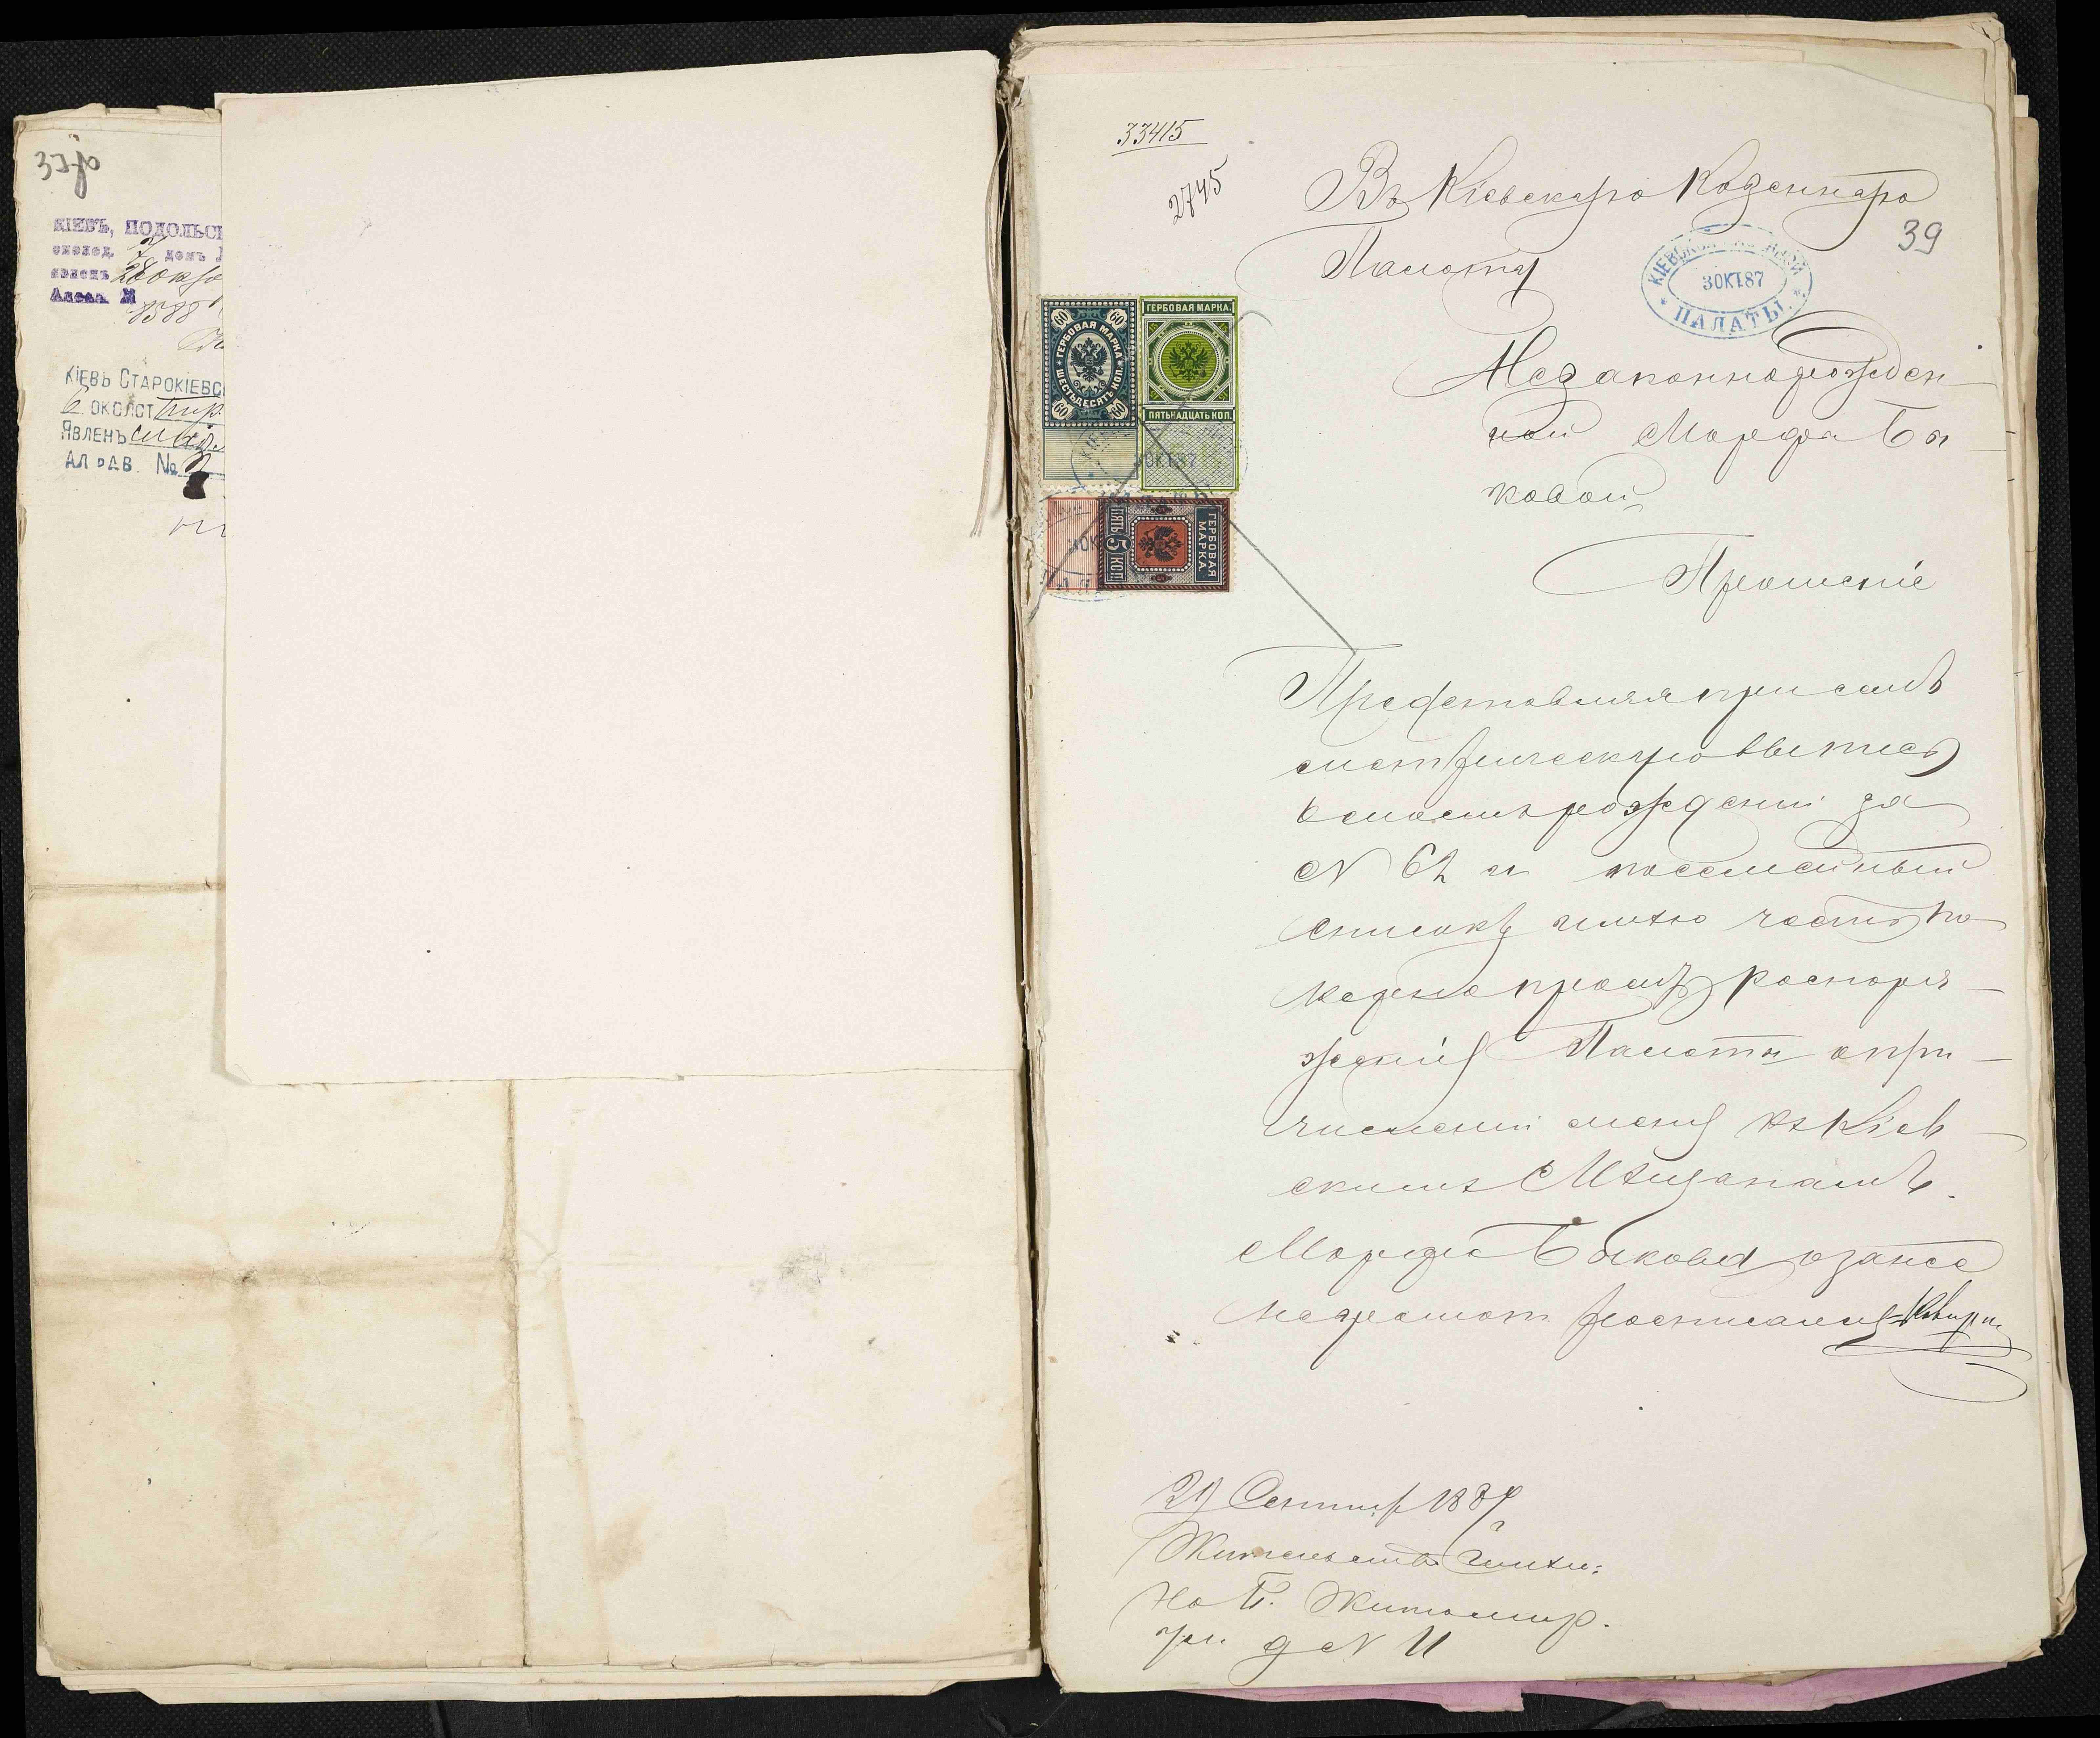 КІЕВЪ, ПОДОЛЬСК
околод. 7 домъ
явленъ 28 окт
Алеев. №
1588
КІЕВЪ СТАРОКІЕВС
6 ОКОЛОТ
ЯВЛЕНЪ
АЛФАВ. №
33415
2745
Въ Кіевскую Казенную
39
Палату
КІЕВСКОЙ КАЗЕННОЙ
3ОКТ.87
ПАЛАТЫ
ГЕРБОВАЯ МАРКА
ШЕСТЬДЕСЯТЪ КОП.
60 60
60 60
ГЕРБОВАЯ МАРКА.
ПЯТЬНАДЦАТЬ КОП.
3ОКТ.87
ГЕРБОВАЯ
МАРКА.
ПЯТЬ 5 КОП
Незаконнорожден
ной Марфы Бы
ковой
Прошеніе
Представляя при семъ
метрическую выпись
о моемъ рожденіи за
№ 62 и посемейный
списокъ имѣю честь по
корно просить распоря-
женія Палаты о при-
численіи меня къ Кіев-
скимъ Мѣщанамъ.
Марфа Быкова а за нее
неграмотн росписался
29 Сентяб 1887
Жительство имѣю:
На Б. Житомир.
ул. д № 11